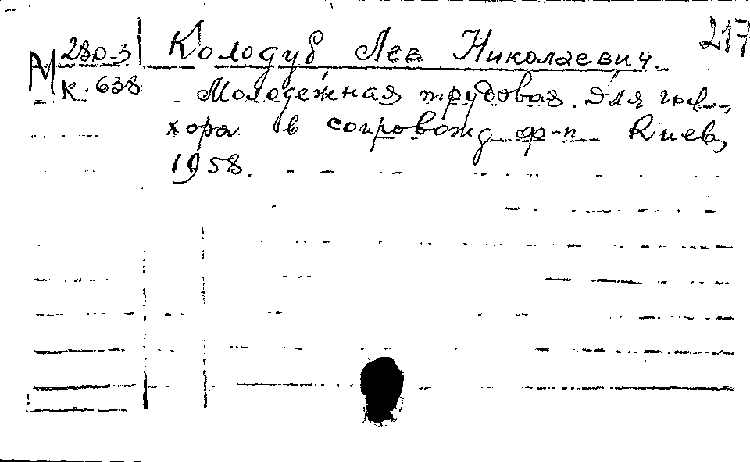 217
М 280-3
К-638
Колодуб Лев Николаевич.
Молодёжная трудовая. Для
хора в сопровожд ф-п Киев,
1958.